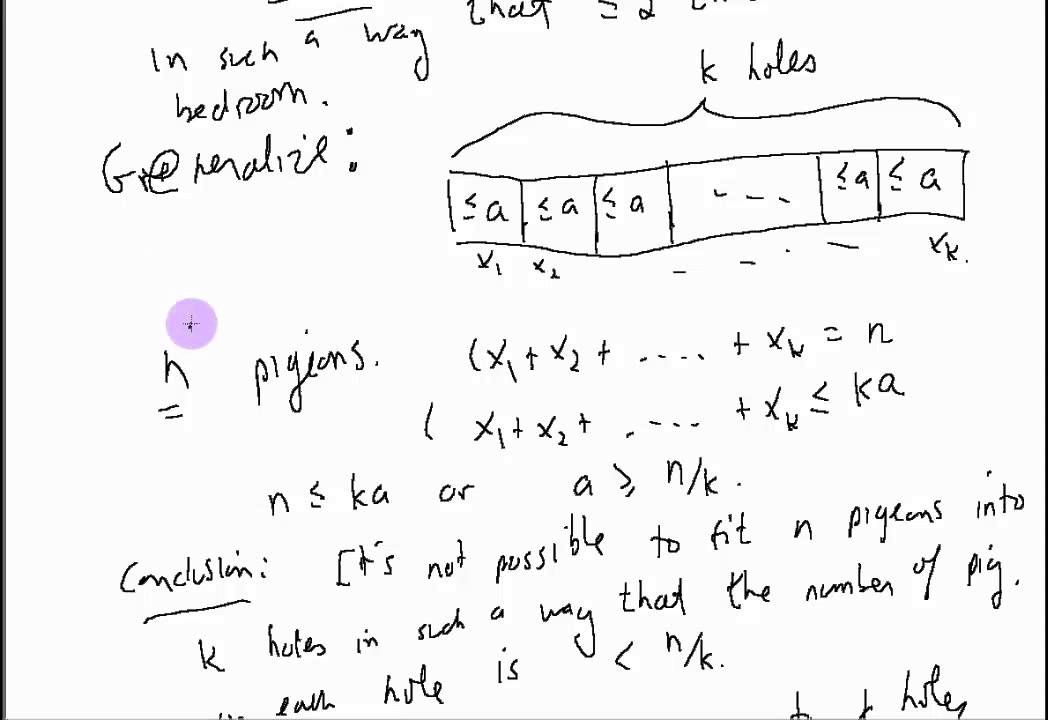 that ≤ 2
in such a way
bedroom.
k holes
Generalize:
≤ a ≤ a ≤ a - - - ≤ a ≤ a
x₁ x₂ - - . — xₖ.
n pigeons. (x₁ + x₂ + ..... + xₖ = n
( x₁ + x₂ + ..... + xₖ ≤ ka
n ≤ ka or a ≥ n/k.
Conclusion: It's not possible to fit n pigeons into
k holes in such a way that the number of pig.
in each hole is < n/k.
holes